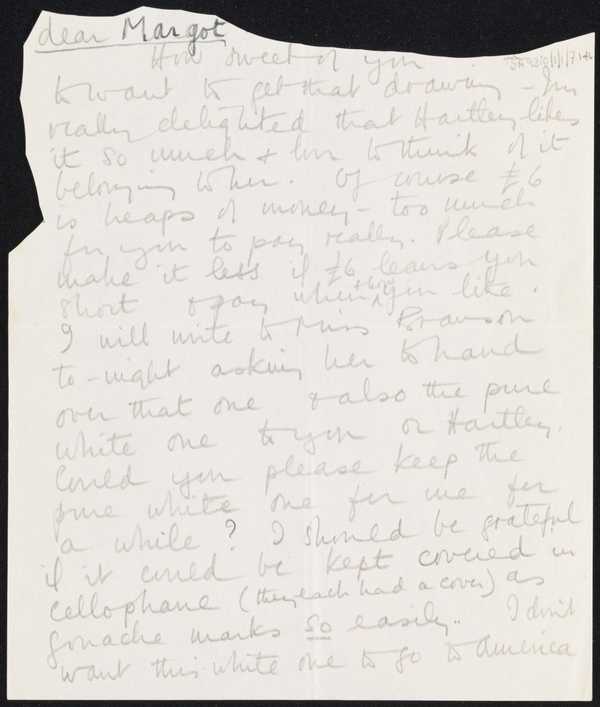 dear Margot
How sweet of you
to want to get that drawing – I'm
really delighted that Hartley likes
it so much & love to think of it
belonging to her. Of course £6
is heaps of money – too much
for you to pay really. Please
make it less if £6 leaves you
short & pay when & how you like.
I will write to Miss Branson
to-night asking her to hand
over that one & also the pure
white one to you or Hartley.
Could you please keep the
pure white one for me for
a while? I should be grateful
if it could be kept covered in
cellophane (they each had a cover) as
gouache marks so easily. I don't
want this white one to go to America